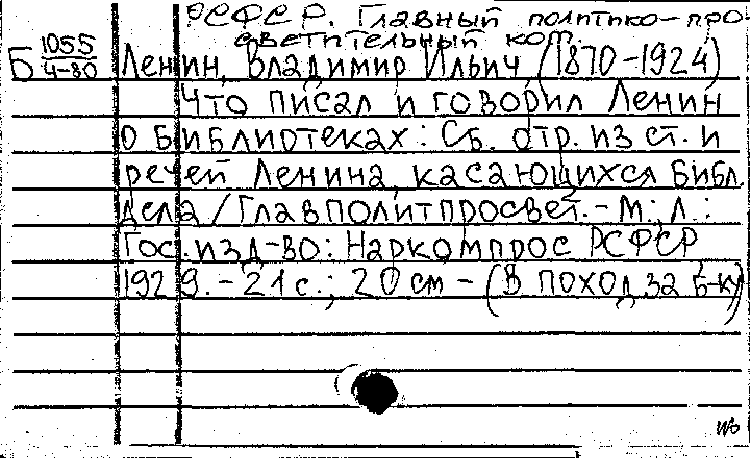 РСФСР. Главный политико-про
светительный ком.
Б 1055
4-80
Ленин, Владимир Ильич (1870-1924)
Что писал и говорил Ленин
о библиотеках: Сб. отр. из ст. и
речей Ленина, касающихся библ.
дела / Главполитпросвет. - М.; Л.:
Гос. изд-во: Наркомпрос РСФСР
1929. - 21 с.; 20 см - (В поход за б-ку)